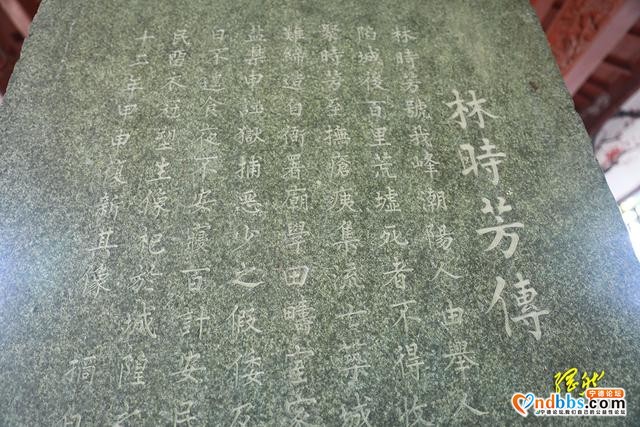 林時芳傳
林時芳號我峰潮陽人由舉人
陷城後百里荒墟死者不得收
聚時芳至撫瘡痍集流亡築城
難締造自衙署廟學田疇
益禁申詿獄捕惡少之假倭
日不遑食夜不安寢百計安民
民酉木於型生像祀於城隍
十年甲申復新其像
摘
ndbbs.com
宁德论坛